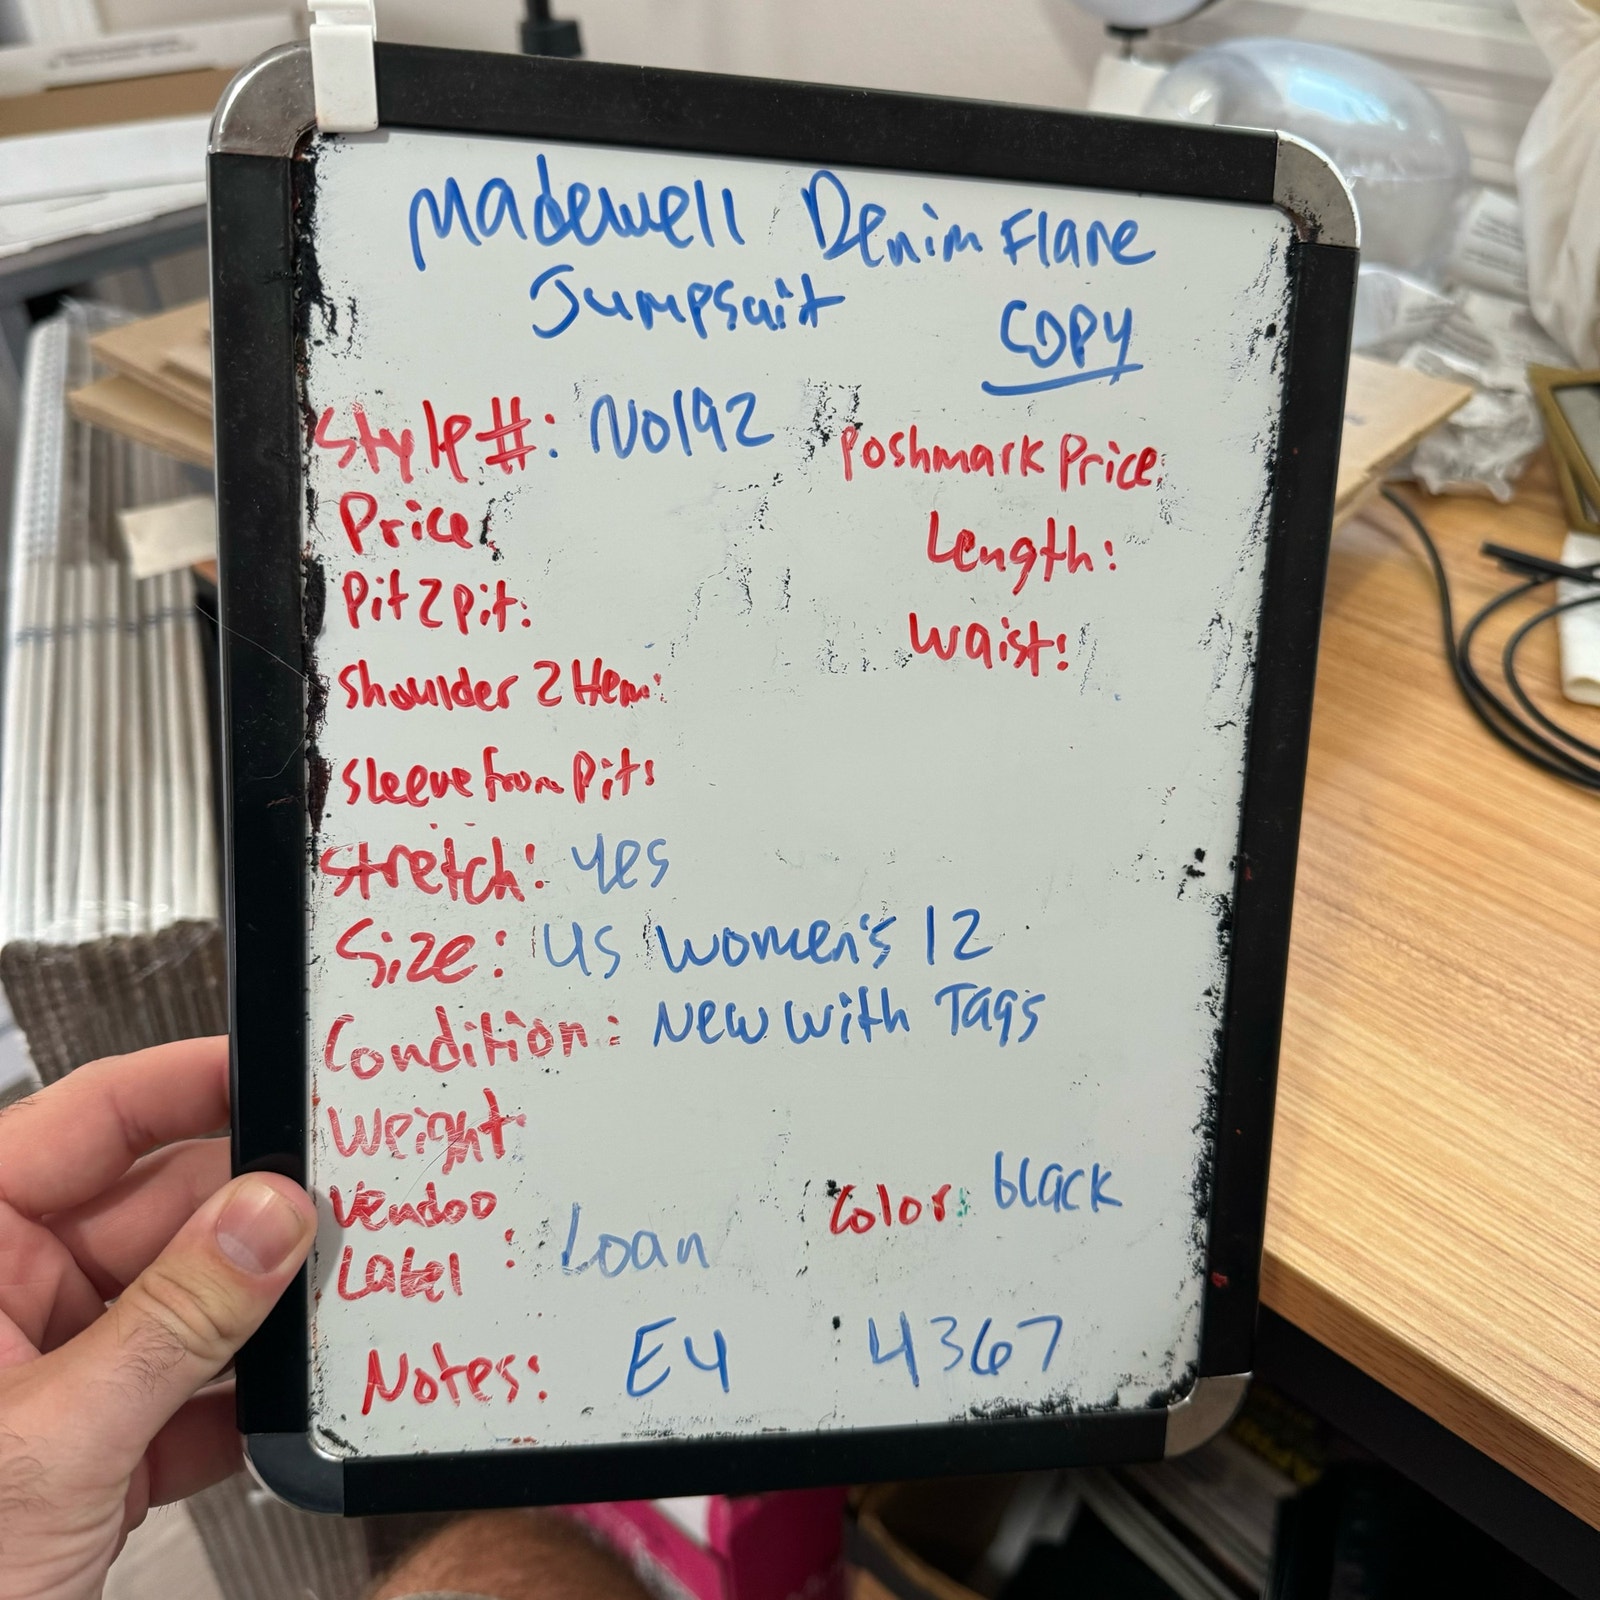 Madewell Denim Flare
Jumpsuit COPY
Style #: NO192 Poshmark Price:
Price:
Length:
Pit 2 pit:
Waist:
Shoulder 2 Hem:
Sleeve from Pit:
Stretch: yes
Size: US Women's 12
Condition: New With Tags
Weight:
Vendoo
Label: Loan Color: black
Notes: E4 4367